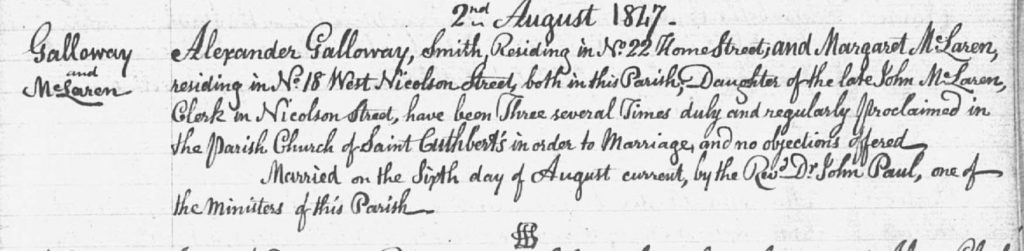 2nd August 1847.
Galloway
and
McLaren
Alexander Galloway, Smith, Residing in No. 22 Home Street; and Margaret McLaren,
residing in No. 18 West Nicolson Street, both in this Parish; Daughter of the late John McLaren,
Clerk in Nicolson Street, have been Three several Times duly and regularly Proclaimed in
the Parish Church of Saint Cuthbert's in order to Marriage, and no objections offered
Married on the Sixth day of August current, by the Revd. Dr. John Paul, one of
the Ministers of this Parish